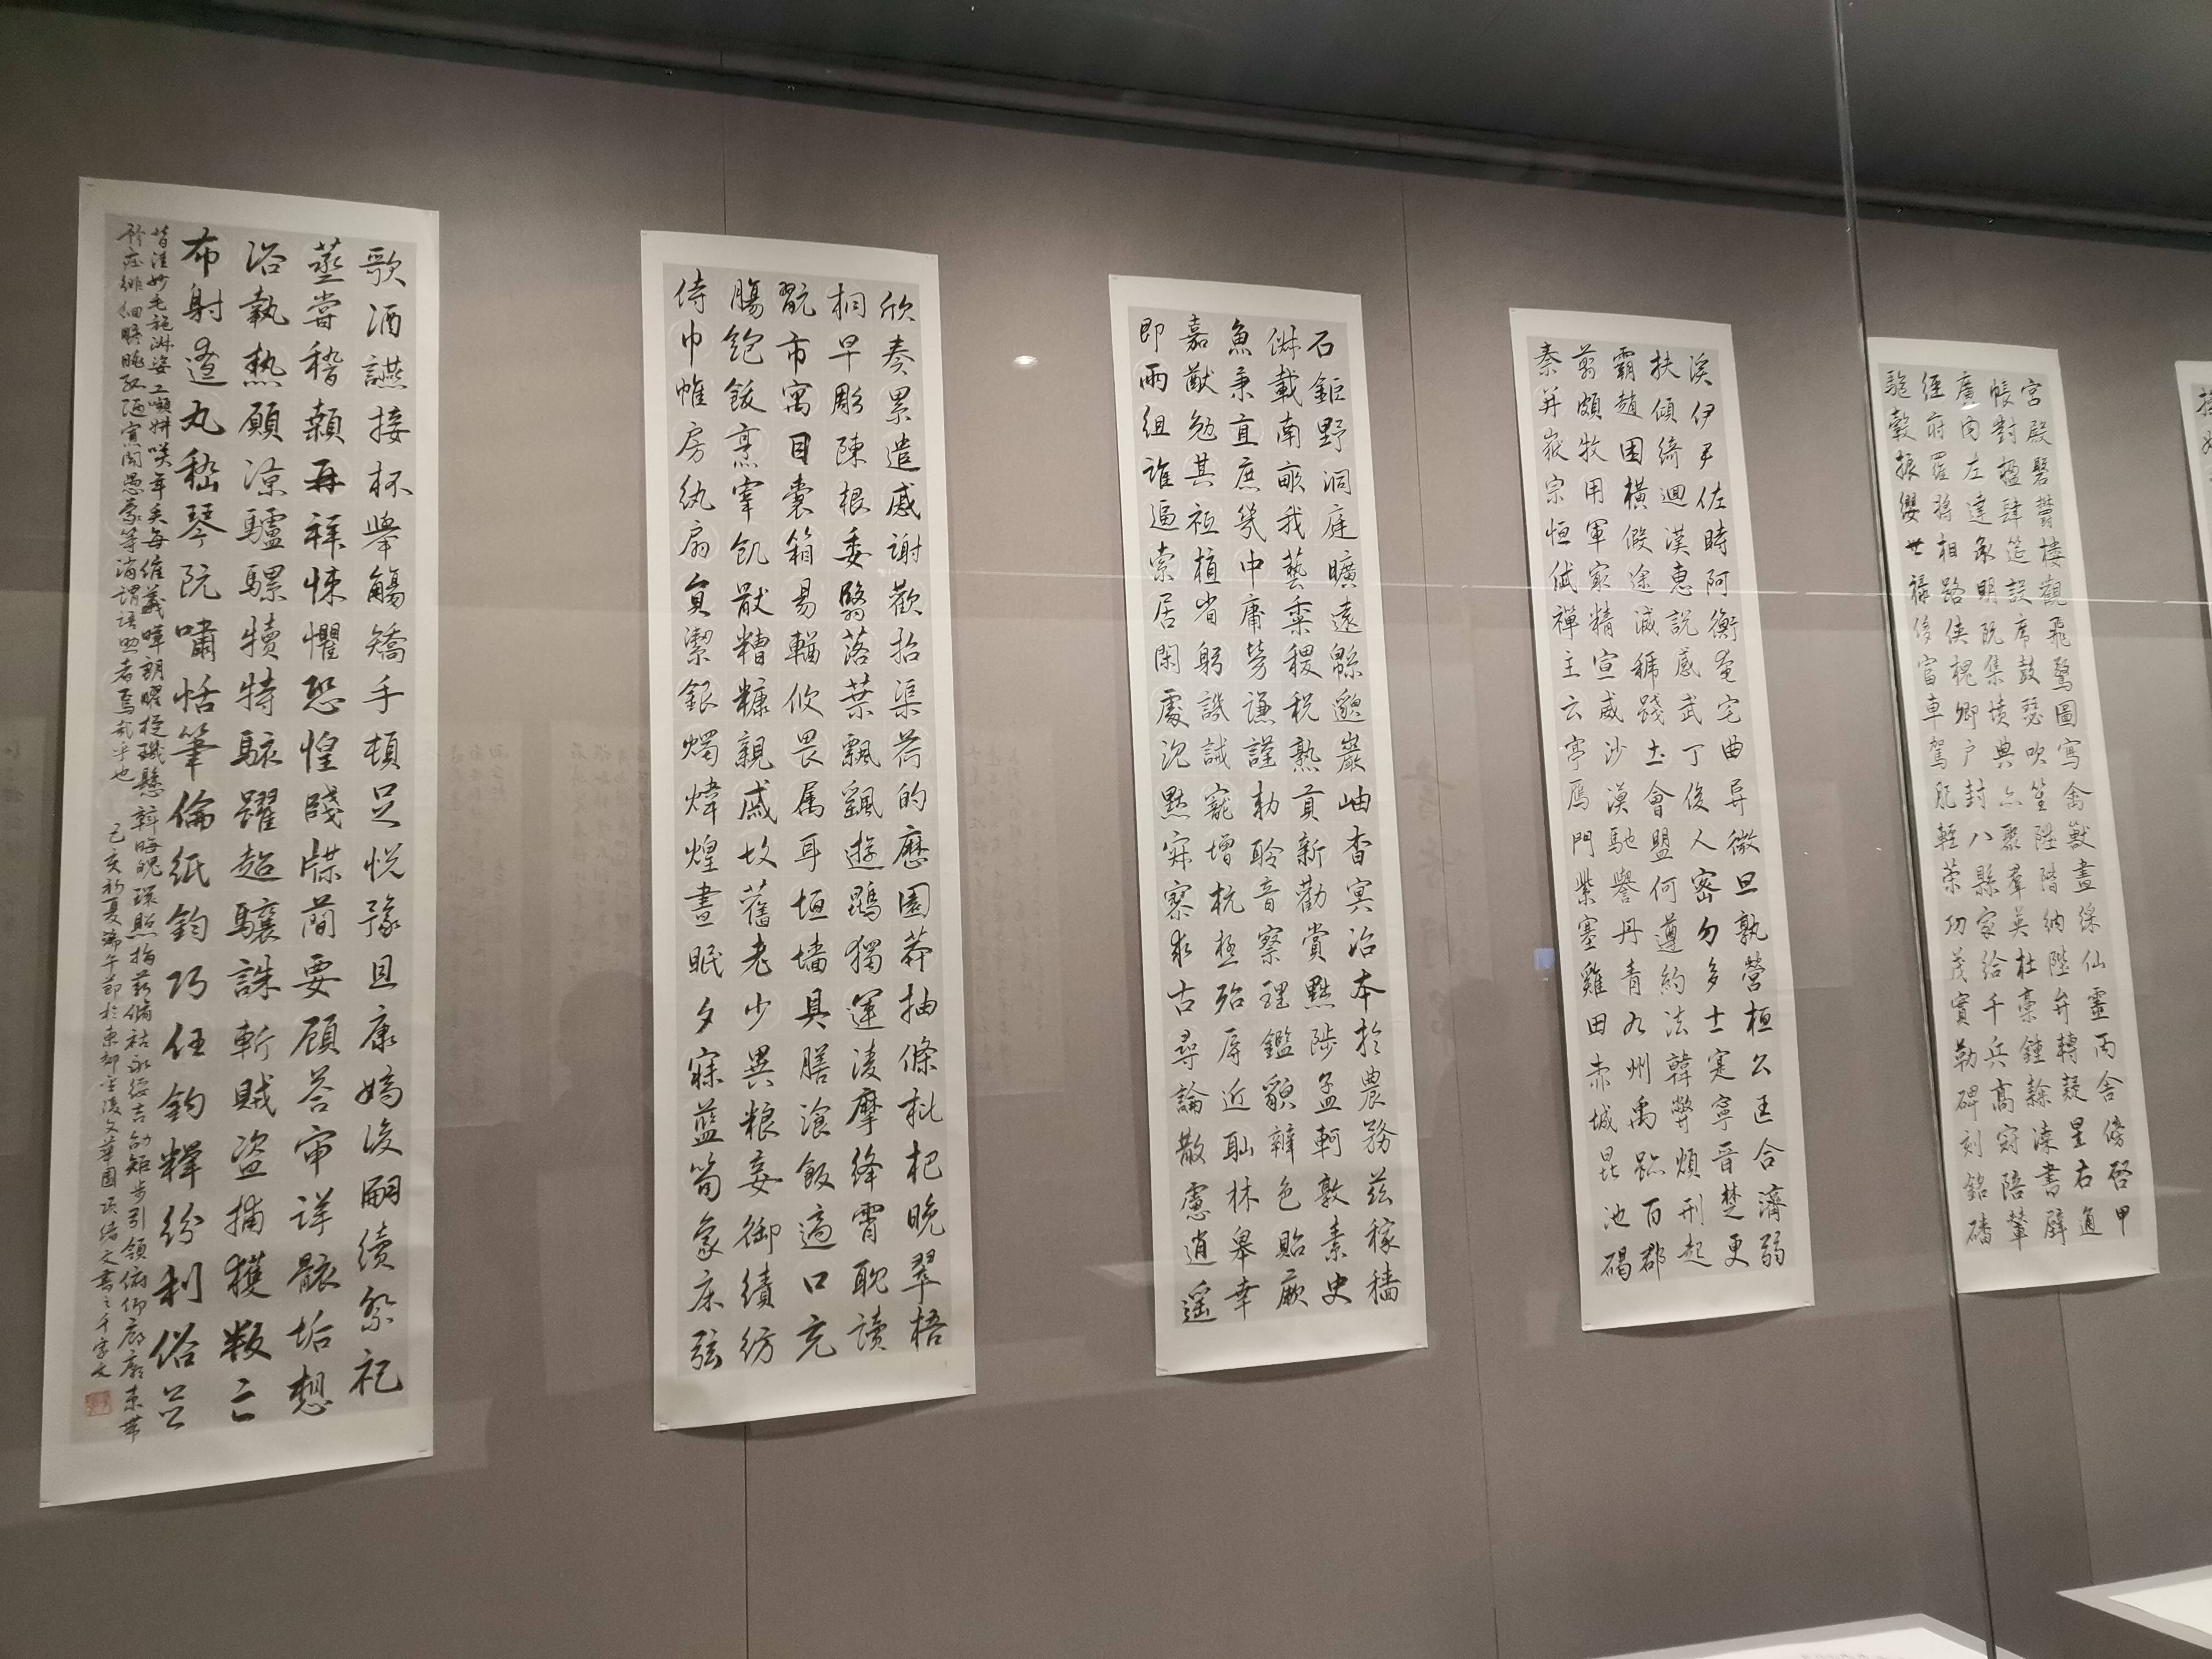 宮殿磐鬱樓觀飛驚圖寫禽獸畫綵仙靈丙舍傍啓甲
帳對楹肆筵設席鼓瑟吹笙陞階納陛弁轉疑星右通
廣内左達承明既集墳典亦聚羣英杜稾鍾隸漆書壁
經府羅將相路俠槐卿户封八縣家給千兵高冠陪輦
驅轂振纓世祿侈富車駕肥輕策功茂實勒碑刻銘磻
溪伊尹佐時阿衡奄宅曲阜微旦孰營桓公匡合濟弱
扶傾綺迴漢惠說感武丁俊乂密勿多士寔寧晉楚更
霸趙困橫假途滅虢踐土會盟何遵約法韓弊煩刑起
翦頗牧用軍最精宣威沙漠馳譽丹青九州禹跡百郡
秦并嶽宗恒岱禪主云亭雁門紫塞雞田赤城昆池碣
石鉅野洞庭曠遠緜邈巖岫杳冥治本於農務茲稼穡
俶載南畝我藝黍稷稅熟貢新勸賞黜陟孟軻敦素史
魚秉直庶幾中庸勞謙謹勅聆音察理鑑貌辨色貽厥
嘉猷勉其祗植省躬譏誡寵增抗極殆辱近恥林皋幸
即兩組誰逼索居閑處沈默寂寥求古尋論散慮逍遥
欣奏累遣慼謝歡招渠荷的歷園莽抽條枇杷晚翠梧
桐早彫陳根委翳落葉飄颻遊鵾獨運凌摩絳霄耽讀
翫市寓目囊箱易輶攸畏属耳垣墻具膳湌飯適口充
腸飽飫烹宰飢猒糟糠親戚故舊老少異粮妾御績紡
侍巾帷房紈扇員潔銀燭煒煌晝眠夕寐藍筍象床弦
歌酒讌接杯舉觴矯手頓足悦豫且康嫡後嗣續祭祀
蒸嘗稽顙再拜悚懼恐惶牋牒簡要顧答審詳骸垢想
浴執熱願涼驢騾犢特駭躍超驤誅斬賊盗捕獲叛亡
布射遼丸嵇琴阮嘯恬筆倫紙鈞巧任釣釋紛利俗並
皆佳妙毛施淑姿工嚬妍咲年矢每催羲暉朗曜璇璣懸斡晦魄環照指薪脩祜永綏吉劭矩步引領俯仰廊廟束帶
矜莊徘徊瞻眺孤陋寡聞愚蒙等誚謂語助者焉哉乎也 己亥初夏端午節於東都金陵文華園項緒文書之千字文